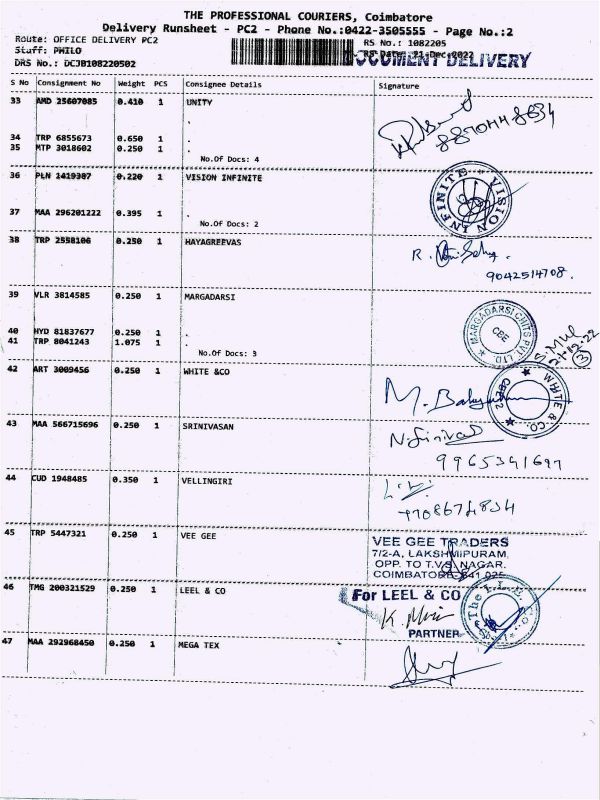 THE PROFESSIONAL COURIERS, Coimbatore
Delivery Runsheet - PC2 - Phone No.:0422-3505555 - Page No.:2
Route: OFFICE DELIVERY PC2 RS No.: 1082205
Stuff: PHILO RS Date: 21-Dec-2022
DOCUMENT DELIVERY
DRS No.: DCJB108220502
S No Consignment No Weight PCS Consignee Details Signature
33 AMD 25607085 0.410 1 UNITY
.
34 TRP 6855673 0.650 1 .
35 MTP 3018602 0.250 1 .
No.Of Docs: 4
36 PLN 1419387 0.220 1 VISION INFINITE
VISION INFINITE
37 MAA 296201222 0.395 1 .
No.Of Docs: 2
38 TRP 2558106 0.250 1 HAYAGREEVAS
R.
9042514708.
39 VLR 3814585 0.250 1 MARGADARSI
MARGADARSI CHITS PVT. LTD.
CBE
40 HYD 81837677 0.250 1 .
41 TRP 8041243 1.075 1 .
21-12-22
3
No.Of Docs: 3
42 ART 3009456 0.250 1 WHITE &CO
WHITE & CO.
CBE-2
43 MAA 566715696 0.250 1 SRINIVASAN
9965391697
44 CUD 1948485 0.350 1 VELLINGIRI
45 TRP 5447321 0.250 1 VEE GEE
VEE GEE TRADERS
7/2-A, LAKSHMIPURAM,
OPP. TO T.V.S. NAGAR,
COIMBATORE-641 025
46 TMG 200321529 0.250 1 LEEL & CO
For LEEL & CO
PARTNER
47 MAA 292968450 0.250 1 MEGA TEX